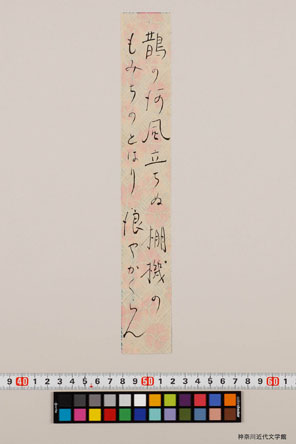 鵲の河風立ちぬ棚機の
もみちのとはり浪やかくらん
9 40 1 2 3 4 5 6 7 8 9 50 1 2 3 4 5 6 7 8 9 60 1 2
神奈川近代文学館